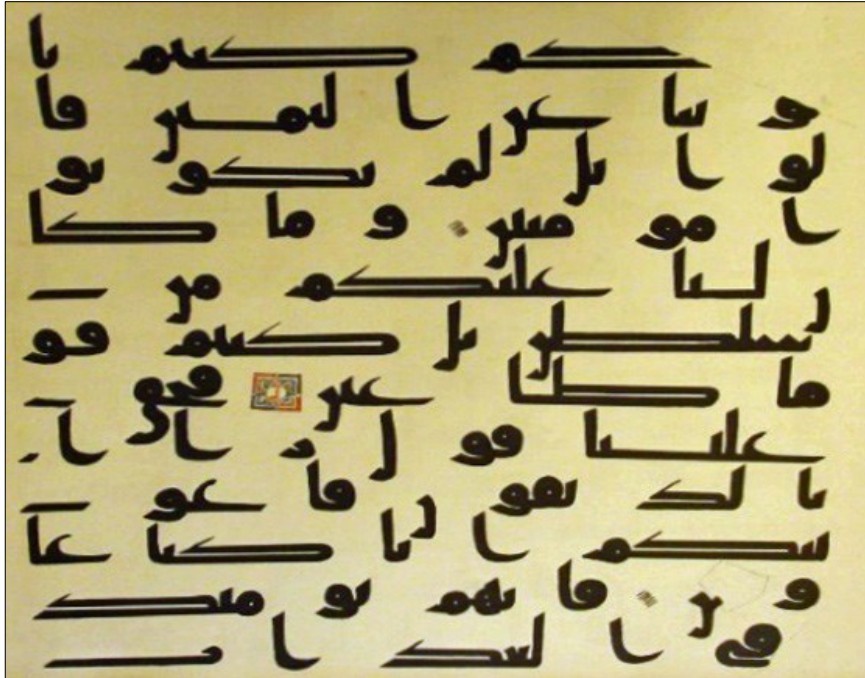 كم كنتم تا
و ننا عن ا ليمين قا
لو ا بل لم تكو نو
ا مو منين و ما كا
ن لنا عليكم من
سلطن بل كنتم قو
ما طغين فحق
علينا قو ل ر بنا ا
نا لذ يقو ن فا غو
ينكم ا نا كنا غا
و ين فا نهم يو ميذ
في ا لعذ ا ب